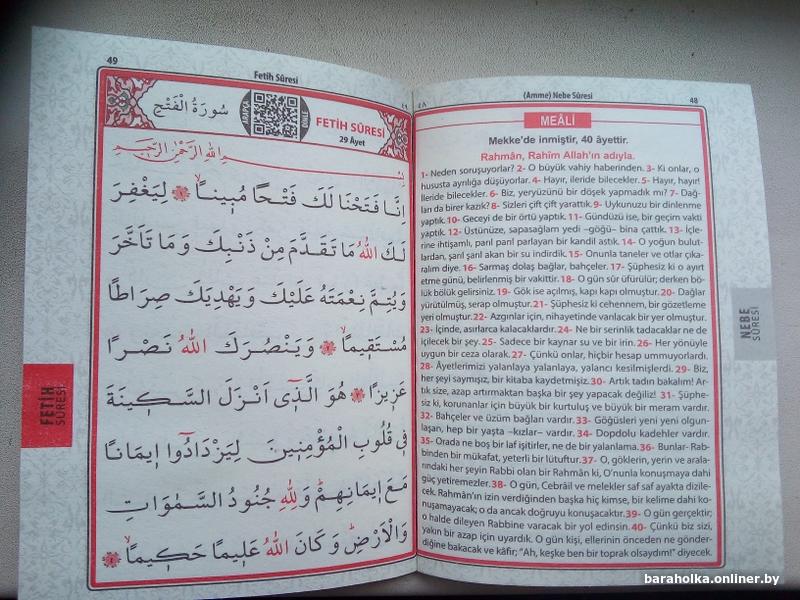 49
Fetih Sûresi
٤٩
سُورَةُ الْفَتْحِ
ARAPÇA
DİNLE
FETİH SÛRESİ
29 Âyet
بِسْمِ اللّٰهِ الرَّحْمٰنِ الرَّحِيمِ
اِنَّا فَتَحْنَا لَكَ فَتْحًا مُبٖينًاۙ ﴿١﴾ لِيَغْفِرَ
لَكَ اللّٰهُ مَا تَقَدَّمَ مِنْ ذَنْبِكَ وَمَا تَاَخَّرَ
وَيُتِمَّ نِعْمَتَهُ عَلَيْكَ وَيَهْدِيَكَ صِرَاطًا
مُسْتَقٖيمًاۙ ﴿٢﴾ وَيَنْصُرَكَ اللّٰهُ نَصْرًا
عَزٖيزًا ﴿٣﴾ هُوَ الَّذٖٓى اَنْزَلَ السَّكٖينَةَ
فٖى قُلُوبِ الْمُؤْمِنٖينَ لِيَزْدَادُٓوا اٖيمَانًا
مَعَ اٖيمَانِهِمْؕ وَلِلّٰهِ جُنُودُ السَّمٰوَاتِ
وَالْاَرْضِؕ وَكَانَ اللّٰهُ عَلٖيمًا حَكٖيمًاۙ ﴿٤﴾
FETİH
SÛRESİ
٤٨
(Amme) Nebe Sûresi
48
MEÂLİ
Mekke'de inmiştir, 40 âyettir.
Rahmân, Rahîm Allah'ın adıyla.
1- Neden soruşuyorlar? 2- O büyük vahiy haberinden. 3- Ki onlar, o
hususta ayrılığa düşüyorlar. 4- Hayır, ileride bilecekler. 5- Hayır, hayır!
İleride bilecekler. 6- Biz, yeryüzünü bir döşek yapmadık mı? 7- Dağ-
ları da birer kazık? 8- Sizleri çift çift yarattık. 9- Uykunuzu bir dinlenme
yaptık. 10- Geceyi de bir örtü yaptık. 11- Gündüzü ise, bir geçim vakti
yaptık. 12- Üstünüze, sapasağlam yedi –göğü– bina çattık. 13- İçle-
rine ihtişamlı, parıl parıl parlayan bir kandil astık. 14- O yoğun bulut-
lardan, şarıl şarıl akan bir su indirdik. 15- Onunla taneler ve otlar çıka-
ralım diye. 16- Sarmaş dolaş bağlar, bahçeler. 17- Şüphesiz ki o ayırt
etme günü, belirlenmiş bir vakittir. 18- O gün sûr üfürülür; derken bö-
lük bölük gelirsiniz. 19- Gök ise açılmış, kapı kapı olmuştur. 20- Dağlar
yürütülmüş, serap olmuştur. 21- Şüphesiz ki cehennem, bir gözetleme
yeri olmuştur. 22- Azgınlar için, nihayetinde varılacak bir yer olmuştur.
23- İçinde, asırlarca kalacaklardır. 24- Ne bir serinlik tadacaklar ne de
içilecek bir şey. 25- Sadece bir kaynar su ve bir irin. 26- Her yönüyle
uygun bir ceza olarak. 27- Çünkü onlar, hiçbir hesap ummuyorlardı.
28- Âyetlerimizi yalanlaya yalanlaya, yalancı kesilmişlerdi. 29- Biz,
her şeyi saymışız, bir kitaba kaydetmişiz. 30- Artık tadın bakalım! Ar-
tık size, azap artırmaktan başka bir şey yapacak değiliz! 31- Şüphe-
siz ki, korunanlar için büyük bir kurtuluş ve büyük bir meram vardır.
32- Bahçeler ve üzüm bağları vardır. 33- Göğüsleri yeni yeni olgun-
laşan, hep bir yaşta –kızlar– vardır. 34- Dopdolu kadehler vardır.
35- Orada ne boş bir laf işitirler, ne de bir yalanlama. 36- Bunlar- Rab-
binden bir mükafat, yeterli bir lütuftur. 37- O, göklerin, yerin ve arala-
rındaki her şeyin Rabbi olan bir Rahmân ki, O'nunla konuşmaya dahi
güç yetiremezler. 38- O gün, Cebrâil ve melekler saf saf ayakta dizile-
cek. Rahmân'ın izin verdiğinden başka hiç kimse, bir kelime dahi ko-
nuşamayacak; o da ancak doğruyu konuşacaktır. 39- O gün gerçektir;
o halde dileyen Rabbine varacak bir yol edinsin. 40- Çünkü biz sizi,
yakın bir azap için uyardık. O gün kişi, ellerinin önceden ne gönder-
diğine bakacak ve kâfir; "Ah, keşke ben bir toprak olsaydım!" diyecek.
NEBE
SÛRESİ
baraholka.onliner.by